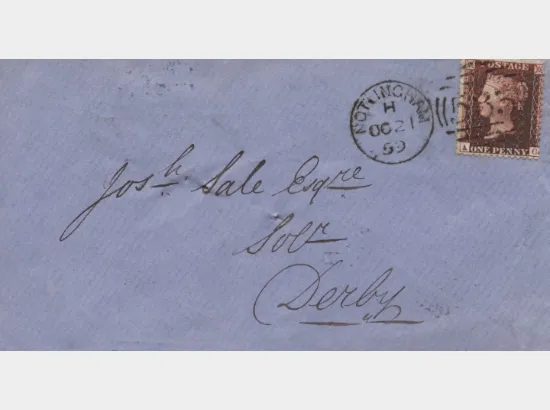 NOTTINGHAM
H
OC 21
59
POSTAGE
A ONE PENNY C
Josh. Sale Esqre
Solr
Derby